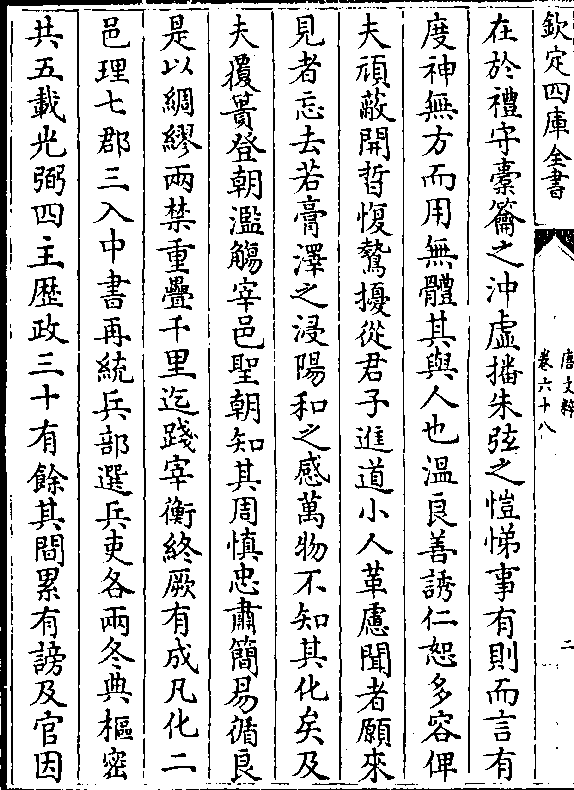 欽定四庫全書
唐文粹
卷六十八
二
在於禮守橐籥之沖虛播朱弦之愷悌事有則而言有
度神無方而用無體其與人也溫良善誘仁恕多容俾
夫頑蔽開哲愎鷙擾從君子進道小人革慮聞者願來
見者忘去若膏澤之浸陽和之感萬物不知其化矣及
夫覆蕢登朝濫觴宰邑聖朝知其周慎忠肅簡易循良
是以綢繆兩禁重疊千里迄踐宰衡終厥有成凡化二
邑理七郡三入中書再統兵部選兵吏各兩冬典樞密
共五載光弼四主歴政三十有餘其間累有謗及官因